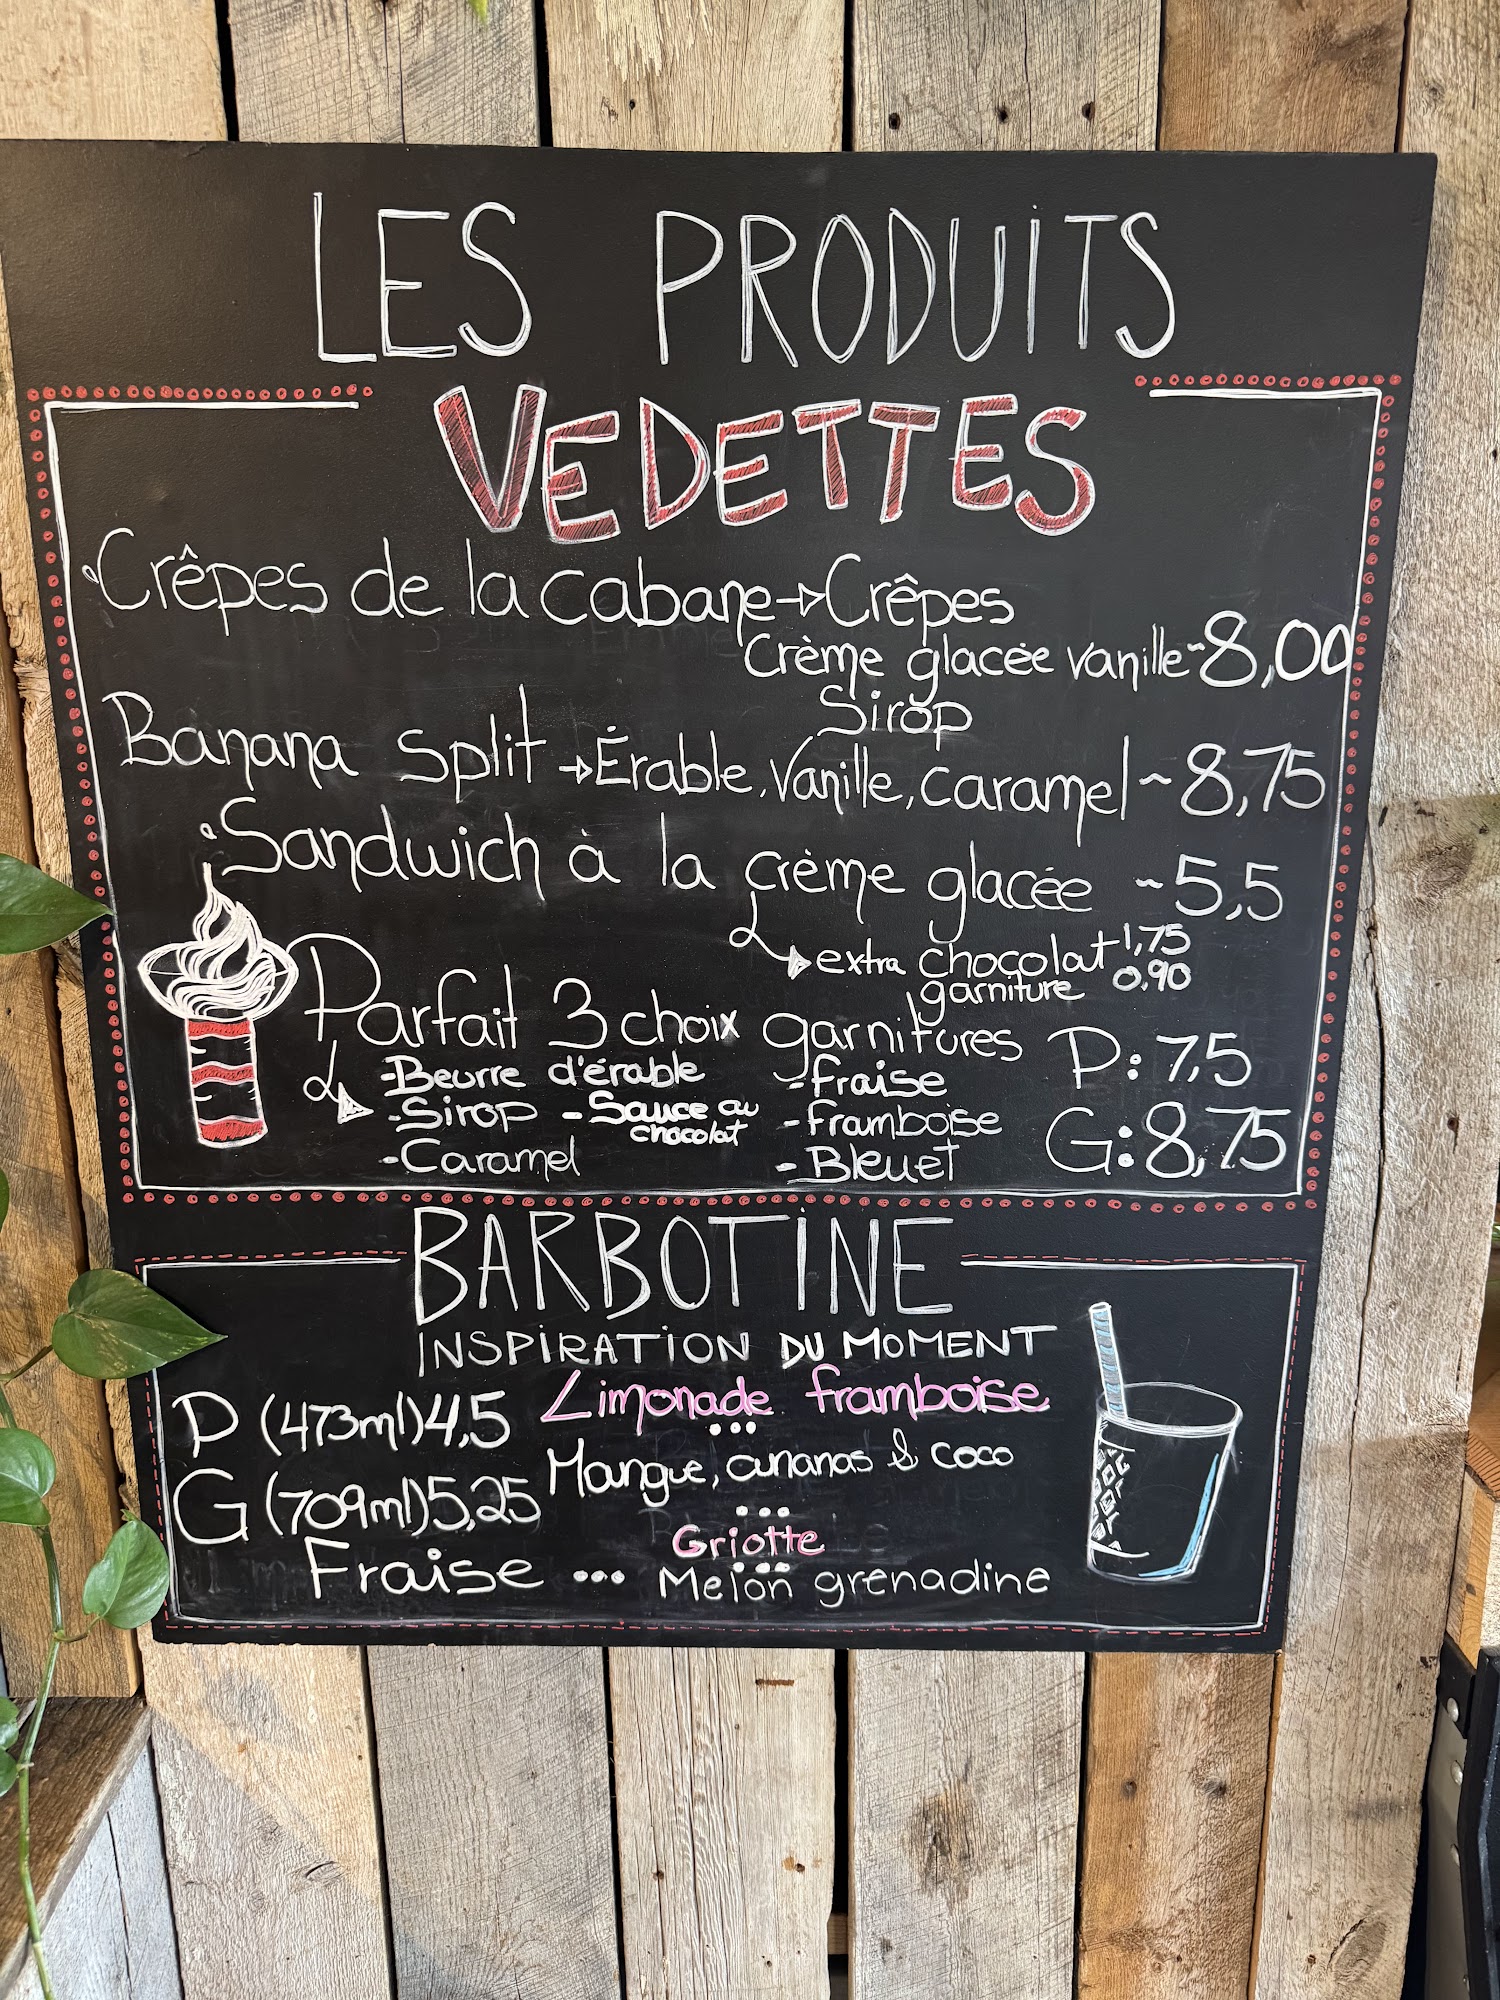 LES PRODUITS
VEDETTES
Crêpes de la cabane → Crêpes
Crème glacée vanille ~ 8,00
Sirop
Banana split → Érable, Vanille, caramel ~ 8,75
Sandwich à la crème glacée ~ 5,5
extra chocolat 1,75
garniture 0,90
Parfait 3 choix garnitures
-Beurre d'érable
-Sirop -Sauce au chocolat
-Caramel
-fraise
-framboise
-Bleuet
P: 7,5
G: 8,75
BARBOTINE
INSPIRATION DU MOMENT
P (473ml) 4,5
G (709ml) 5,25
Limonade framboise
...
Mangue, ananas & coco
...
Griotte
...
Fraise ... Melon grenadine